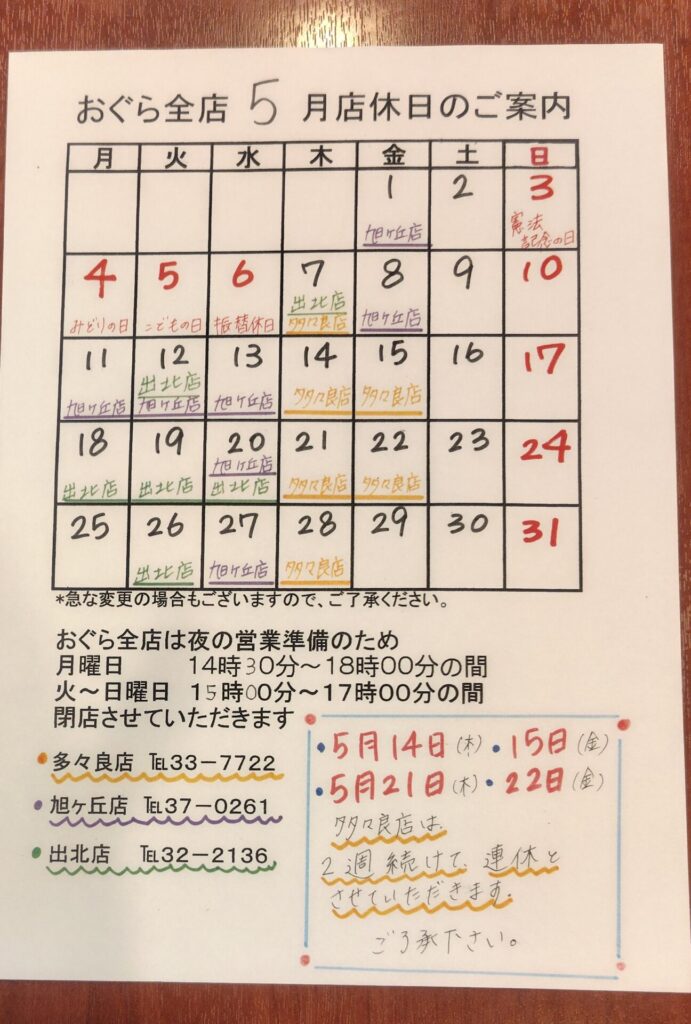 おぐら全店 5 月店休日のご案内
月 火 水 木 金 土 日
1 2 3
旭ヶ丘店 憲法記念の日
4 5 6 7 8 9 10
みどりの日 こどもの日 振替休日 出北店 多々良店 旭ヶ丘店
11 12 13 14 15 16 17
旭ヶ丘店 出北店 旭ヶ丘店 旭ヶ丘店 多々良店 多々良店
18 19 20 21 22 23 24
出北店 出北店 旭ヶ丘店 出北店 多々良店 多々良店
25 26 27 28 29 30 31
出北店 旭ヶ丘店 多々良店
*急な変更の場合もございますので、ご了承ください。
おぐら全店は夜の営業準備のため
月曜日 14時30分～18時00分の間
火～日曜日 15時00分～17時00分の間
閉店させていただきます
多々良店 ℡33－7722
旭ヶ丘店 ℡37－0261
出北店 ℡32－2136
•5月14日(木) •15日(金)
•5月21日(木) •22日(金)
多々良店は、
2週続けて、連休と
させていただきます。
ご了承下さい。